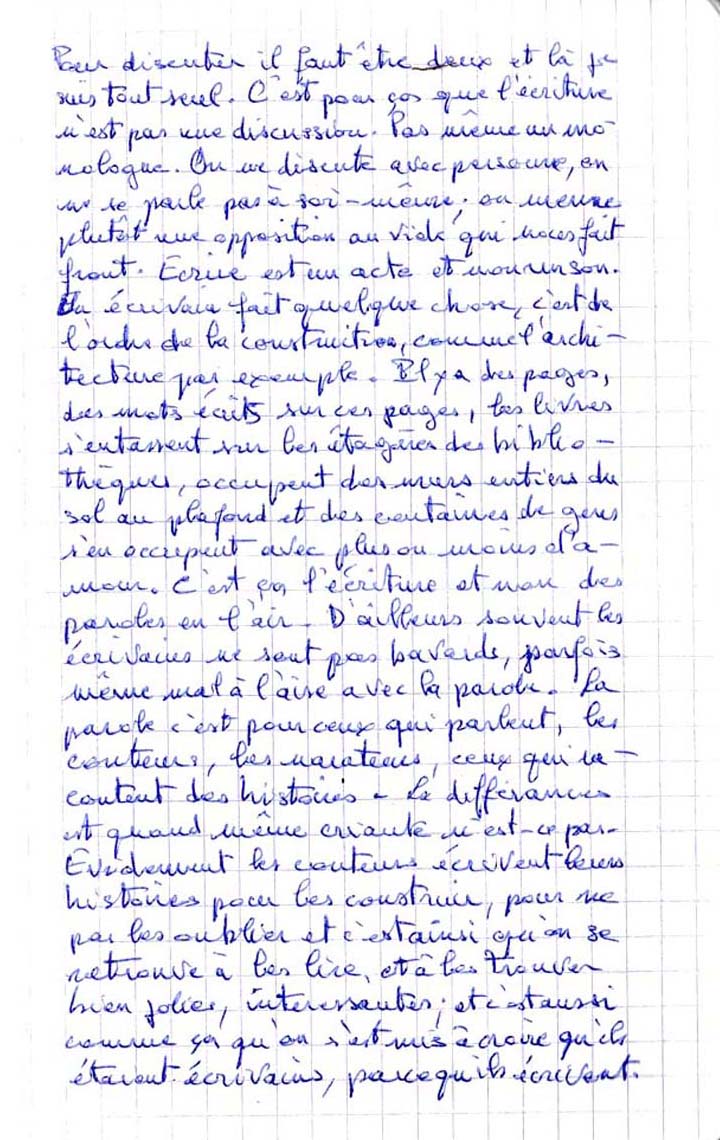 Pour discuter il faut être deux et là je
suis tout seul. C'est pour ça que l'écriture
n'est pas une discussion. Pas même un mo-
nologue. On ne discute avec personne, on
ne se parle pas à soi-même; on mène
plutôt une opposition au vide qui nous fait
front. Ecrire est un acte et non un son.
Un écrivain fait quelque chose, c'est de
l'ordre de la construction, comme l'archi-
tecture par exemple. Il y a des pages,
des mots écrits sur ces pages, les livres
s'entassent sur les étagères des biblio-
thèques, occupent des murs entiers du
sol au plafond et des centaines de gens
s'en occupent avec plus ou moins d'a-
mour. C'est ça l'écriture et non des
paroles en l'air. D'ailleurs souvent les
écrivains ne sont pas bavards, parfois
même mal à l'aise avec la parole. La
parole c'est pour ceux qui parlent, les
conteurs, les narrateurs, ceux qui ra-
content des histoires. La différence
est quand même criante n'est-ce pas.
Evidemment les conteurs écrivent leurs
histoires pour les construire, pour ne
pas les oublier et c'est ainsi qu'on se
retrouve à les lire, et à les trouver
bien jolies, intéressantes; et c'est aussi
comme ça qu'on s'est mis à croire qu'ils
étaient écrivains, parce qu'ils écrivent.